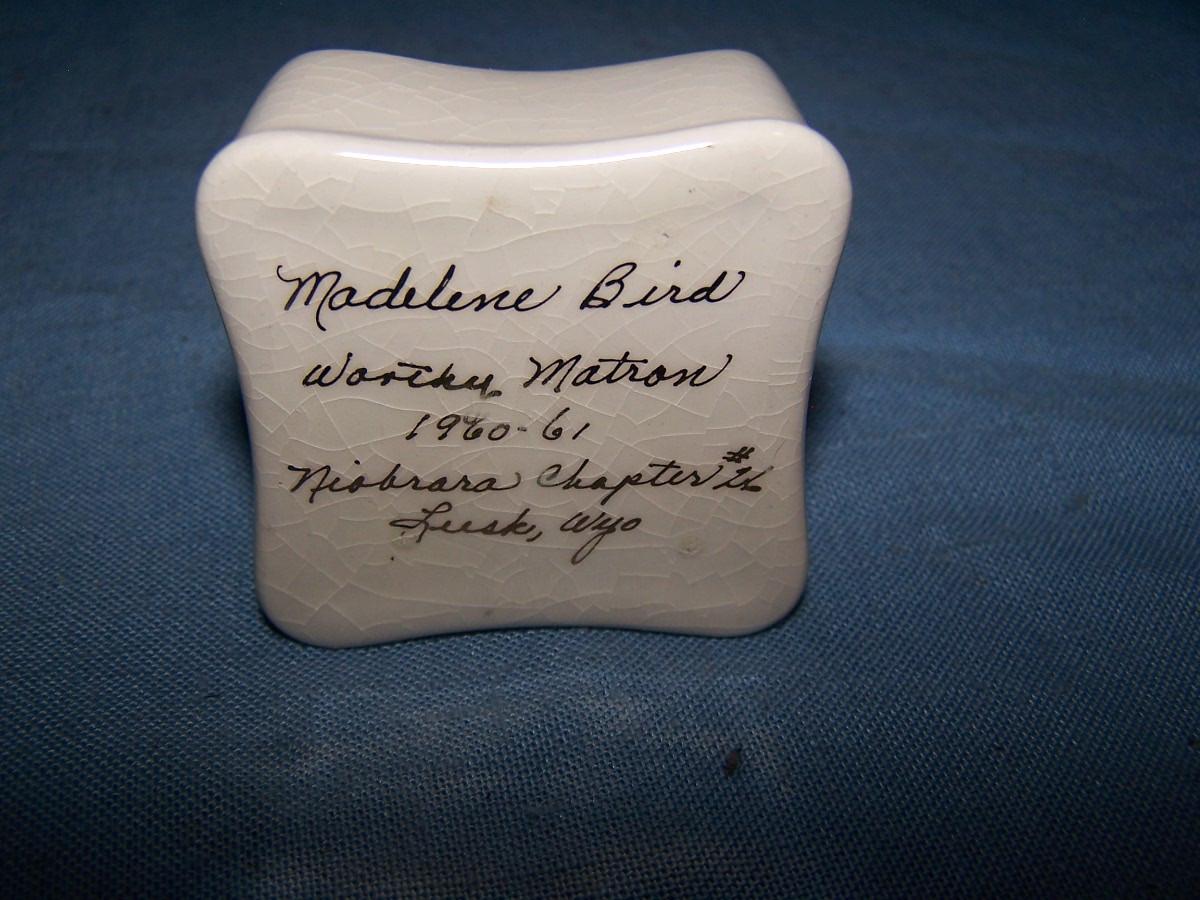 Madelene Bird
Worthy Matron
1960-61
Niobrara Chapter #26
Lusk, Wyo